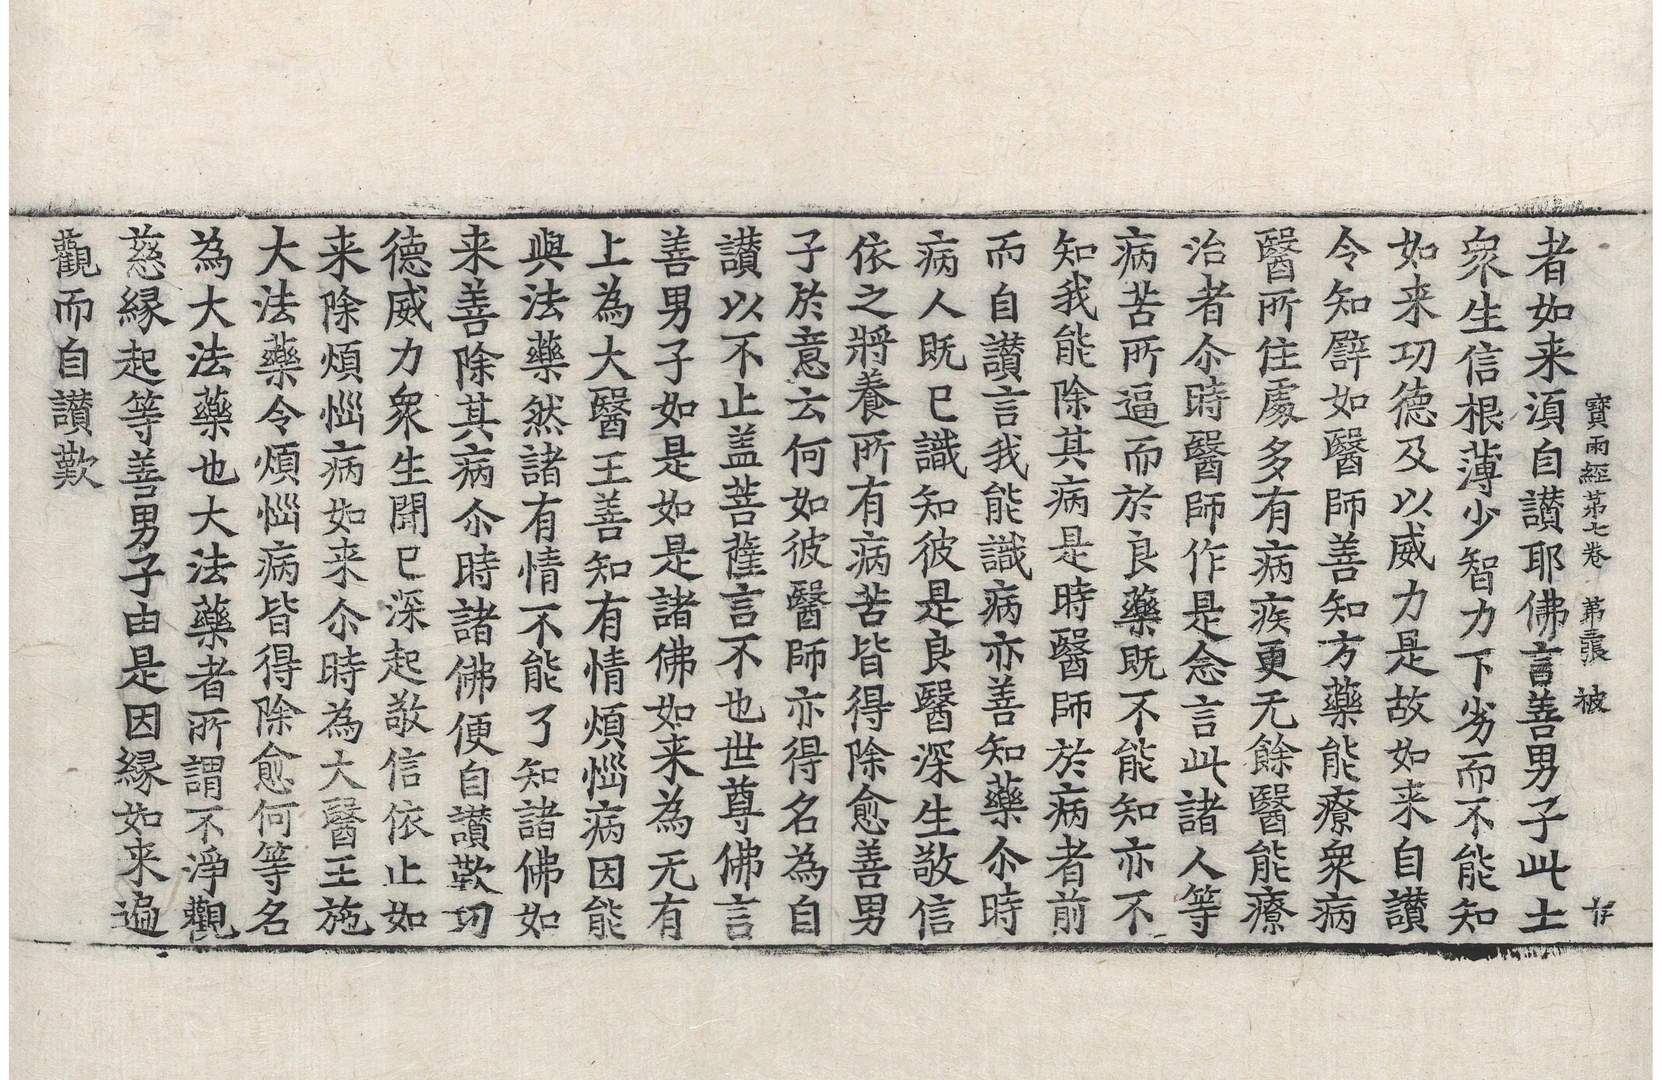 寶雨經第七卷 第三張 被
者如来湏自讃耶佛言善男子此土
衆生信根薄少智力下劣而不能知
如来功德及以威力是故如来自讃
令知譬如醫師善知方藥能療衆病
醫所住處多有病疾更无餘醫能療
治者尒時醫師作是念言此諸人等
病苦所逼而於良藥既不能知亦不
知我能除其病是時醫師於病者前
而自讃言我能識病亦善知藥尒時
病人既巳識知彼是良醫深生敬信
依之將養所有病苦皆得除愈善男
子於意云何如彼醫師亦得名為自
讃以不止盖菩薩言不也世尊佛言
善男子如是如是諸佛如来為无有
上為大醫王善知有情煩惱病因能
與法藥然諸有情不能了知諸佛如
来善除其病尒時諸佛便自讃歎功
德威力衆生聞巳深起敬信依止如
来除煩惱病如来尒時為大醫王施
大法藥令煩惱病皆得除愈何等名
為大法藥也大法藥者所謂不淨觀
慈縁起等善男子由是因縁如来遍
觀而自讃歎